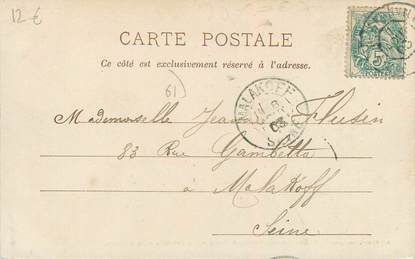 12 €
CARTE POSTALE
Ce côté est exclusivement réservé à l'adresse.
61
MALAKOFF
03
5
Mademoiselle Jeanne Flusin
83 Rue Gambetta
à Malakoff
Seine